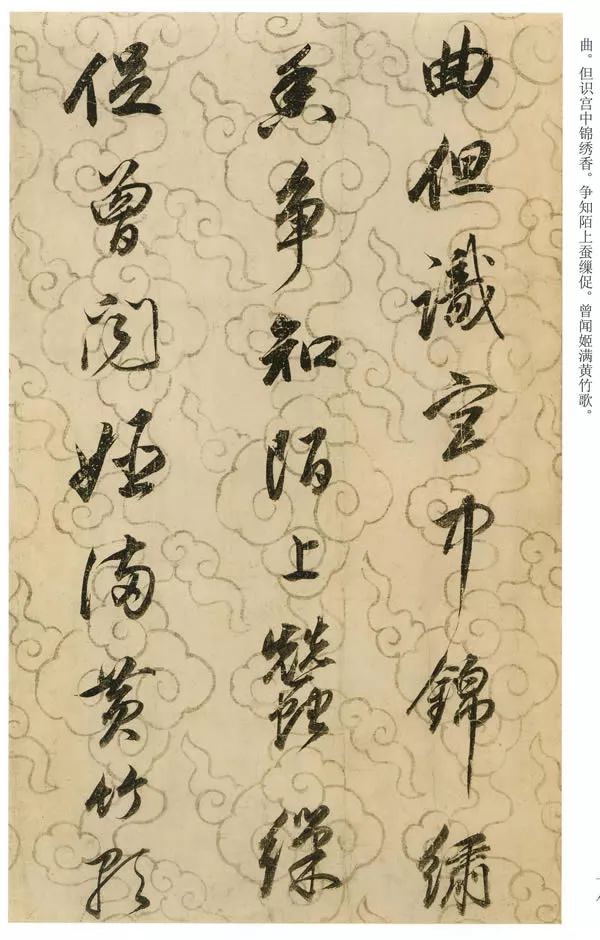 曲但識宫中錦繡
香争知陌上蠶繅
促曾聞姬滿黄竹歌
曲。但识宫中锦绣香。争知陌上蚕缫促。曾闻姬满黄竹歌。